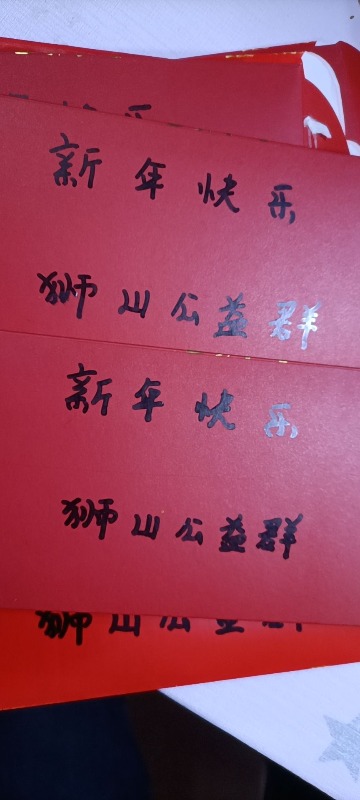 快乐
新年快乐
狮山公益群
新年快乐
狮山公益群
狮山公益群